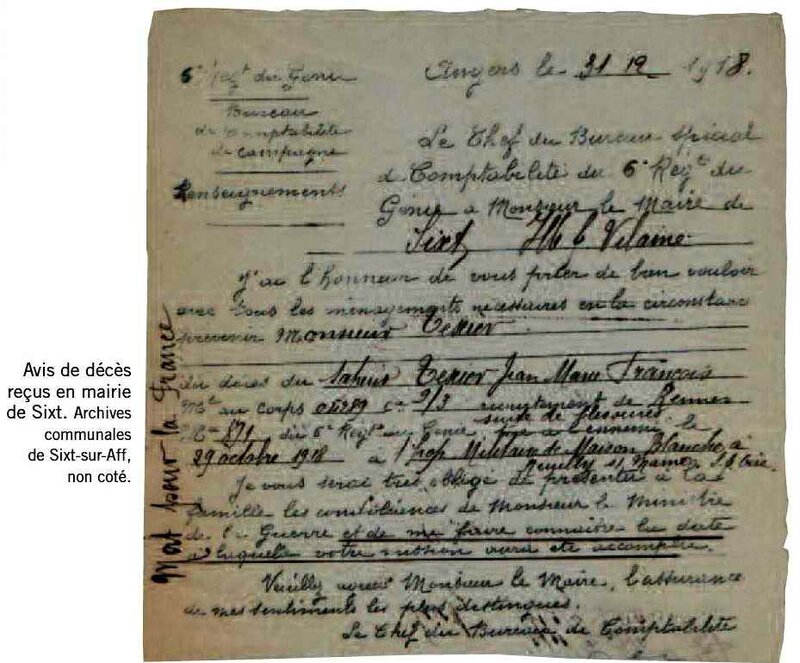 Avis de décès
reçus en mairie
de Sixt. Archives
communales
de Sixt-sur-Aff,
non coté.
6e Régt du Génie
Bureau
de Comptabilité
de Campagne
Renseignements
Angers le 31 12 1918.
Le Chef du Bureau spécial
de Comptabilité du 6e Régt du
Génie à Monsieur le Maire de
Sixt Ille & Vilaine
J'ai l'honneur de vous prier de bien vouloir
avec tous les ménagements nécessaires en la circonstance
prévenir Monsieur Texier
du décès du Sapeur Texier Jean Marie François
Mle au corps Cie 9/3 recrutement de Rennes
suite de blessures
Mle 871 du 6e Régt du Génie tué à l'ennemi le
29 octobre 1918 à l'hop Militaire de Maison Blanche à
Neuilly s/ Marne S & Oise
Je vous serai très obligé de présenter à la
famille les condoléances de Monsieur le Ministre
de la Guerre et de me faire connaître la date
à laquelle votre mission aura été accomplie.
Veuillez agréer Monsieur le Maire, l'assurance
de mes sentiments les plus distingués.
Le Chef du Bureau de Comptabilité
Mort pour la France